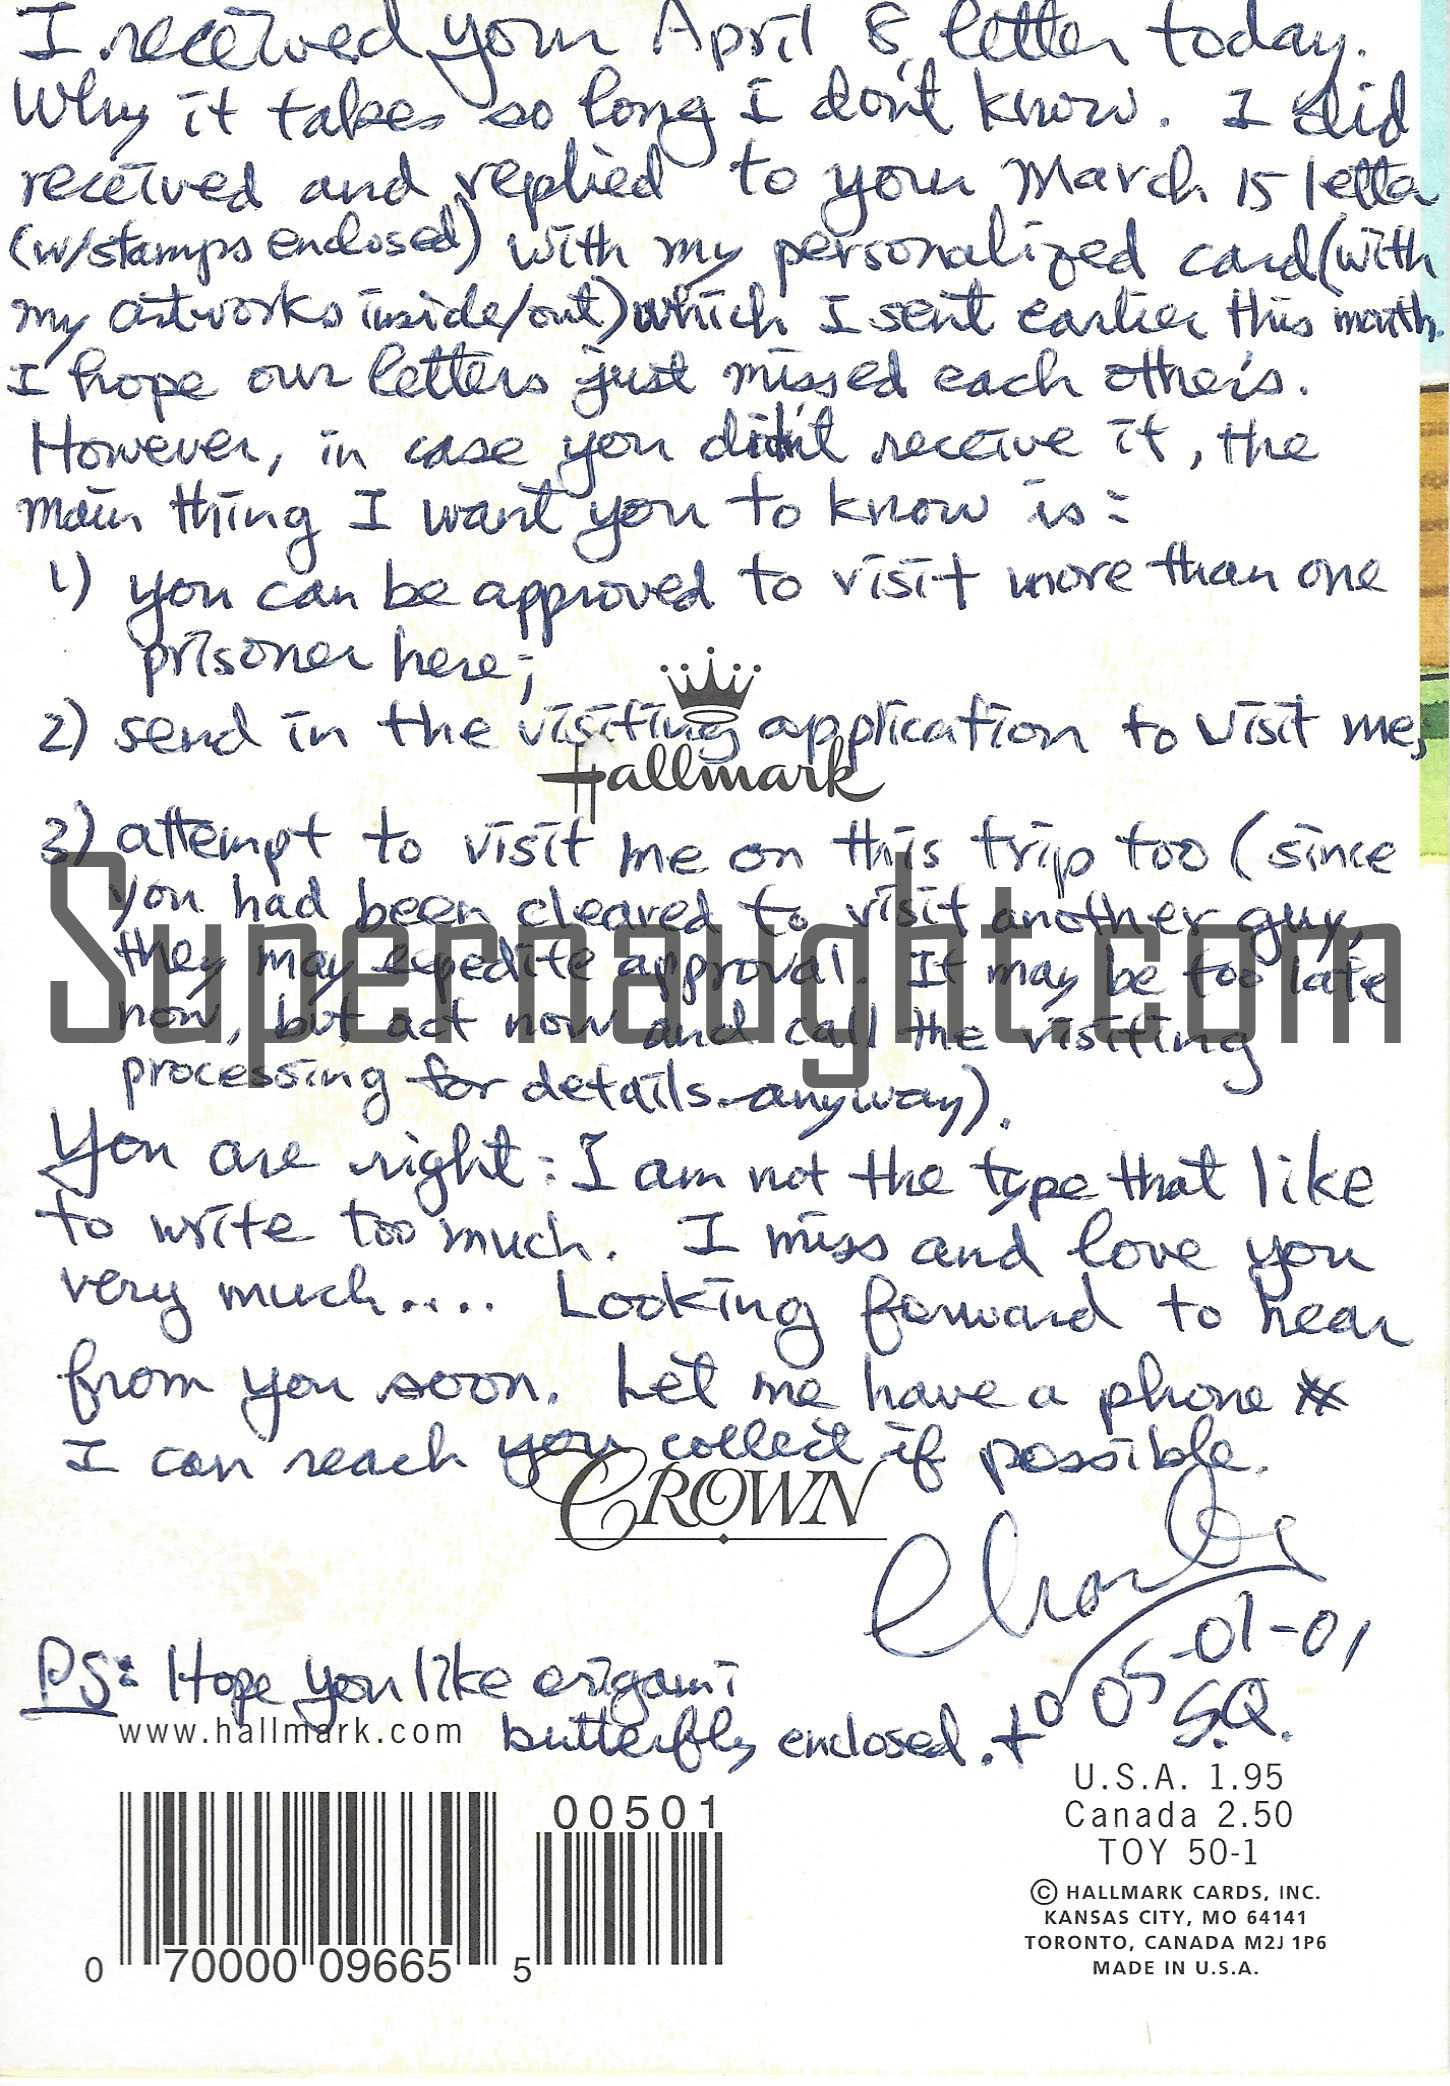 I received your April 8, letter today.
Why it takes so long I don't know. I did
received and replied to your March 15 letter
(w/stamps enclosed) with my personalized card (with
my artworks inside/out) which I sent earlier this month.
I hope our letters just missed each other's.
However, in case you didn't receive it, the
main thing I want you to know is:
1) you can be approved to visit more than one
prisoner here;
2) send in the visiting application to visit me;
Hallmark
3) attempt to visit me on this trip too (since
you had been cleared to visit another guy,
Supernaught.com
they may expedite approval. It may be too late
now, but act now and call the visiting
processing for details anyway).
You are right: I am not the type that like
to write too much. I miss and love you
very much.... Looking forward to hear
from you soon. Let me have a phone #
I can reach you collect if possible.
CROWN
Charles
05-01-01
S.Q.
PS: Hope you like origami
butterfly enclosed.
www.hallmark.com
U.S.A. 1.95
Canada 2.50
TOY 50-1
© HALLMARK CARDS, INC.
KANSAS CITY, MO 64141
TORONTO, CANADA M2J 1P6
MADE IN U.S.A.
00501
0 70000 09665 5